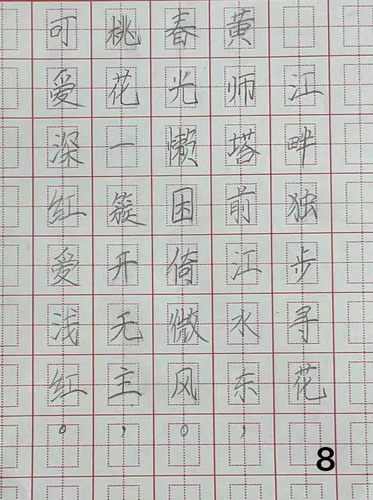 江畔独步寻花
黄师塔前江水东，
春光懒困倚微风。
桃花一簇开无主，
可爱深红爱浅红。
8